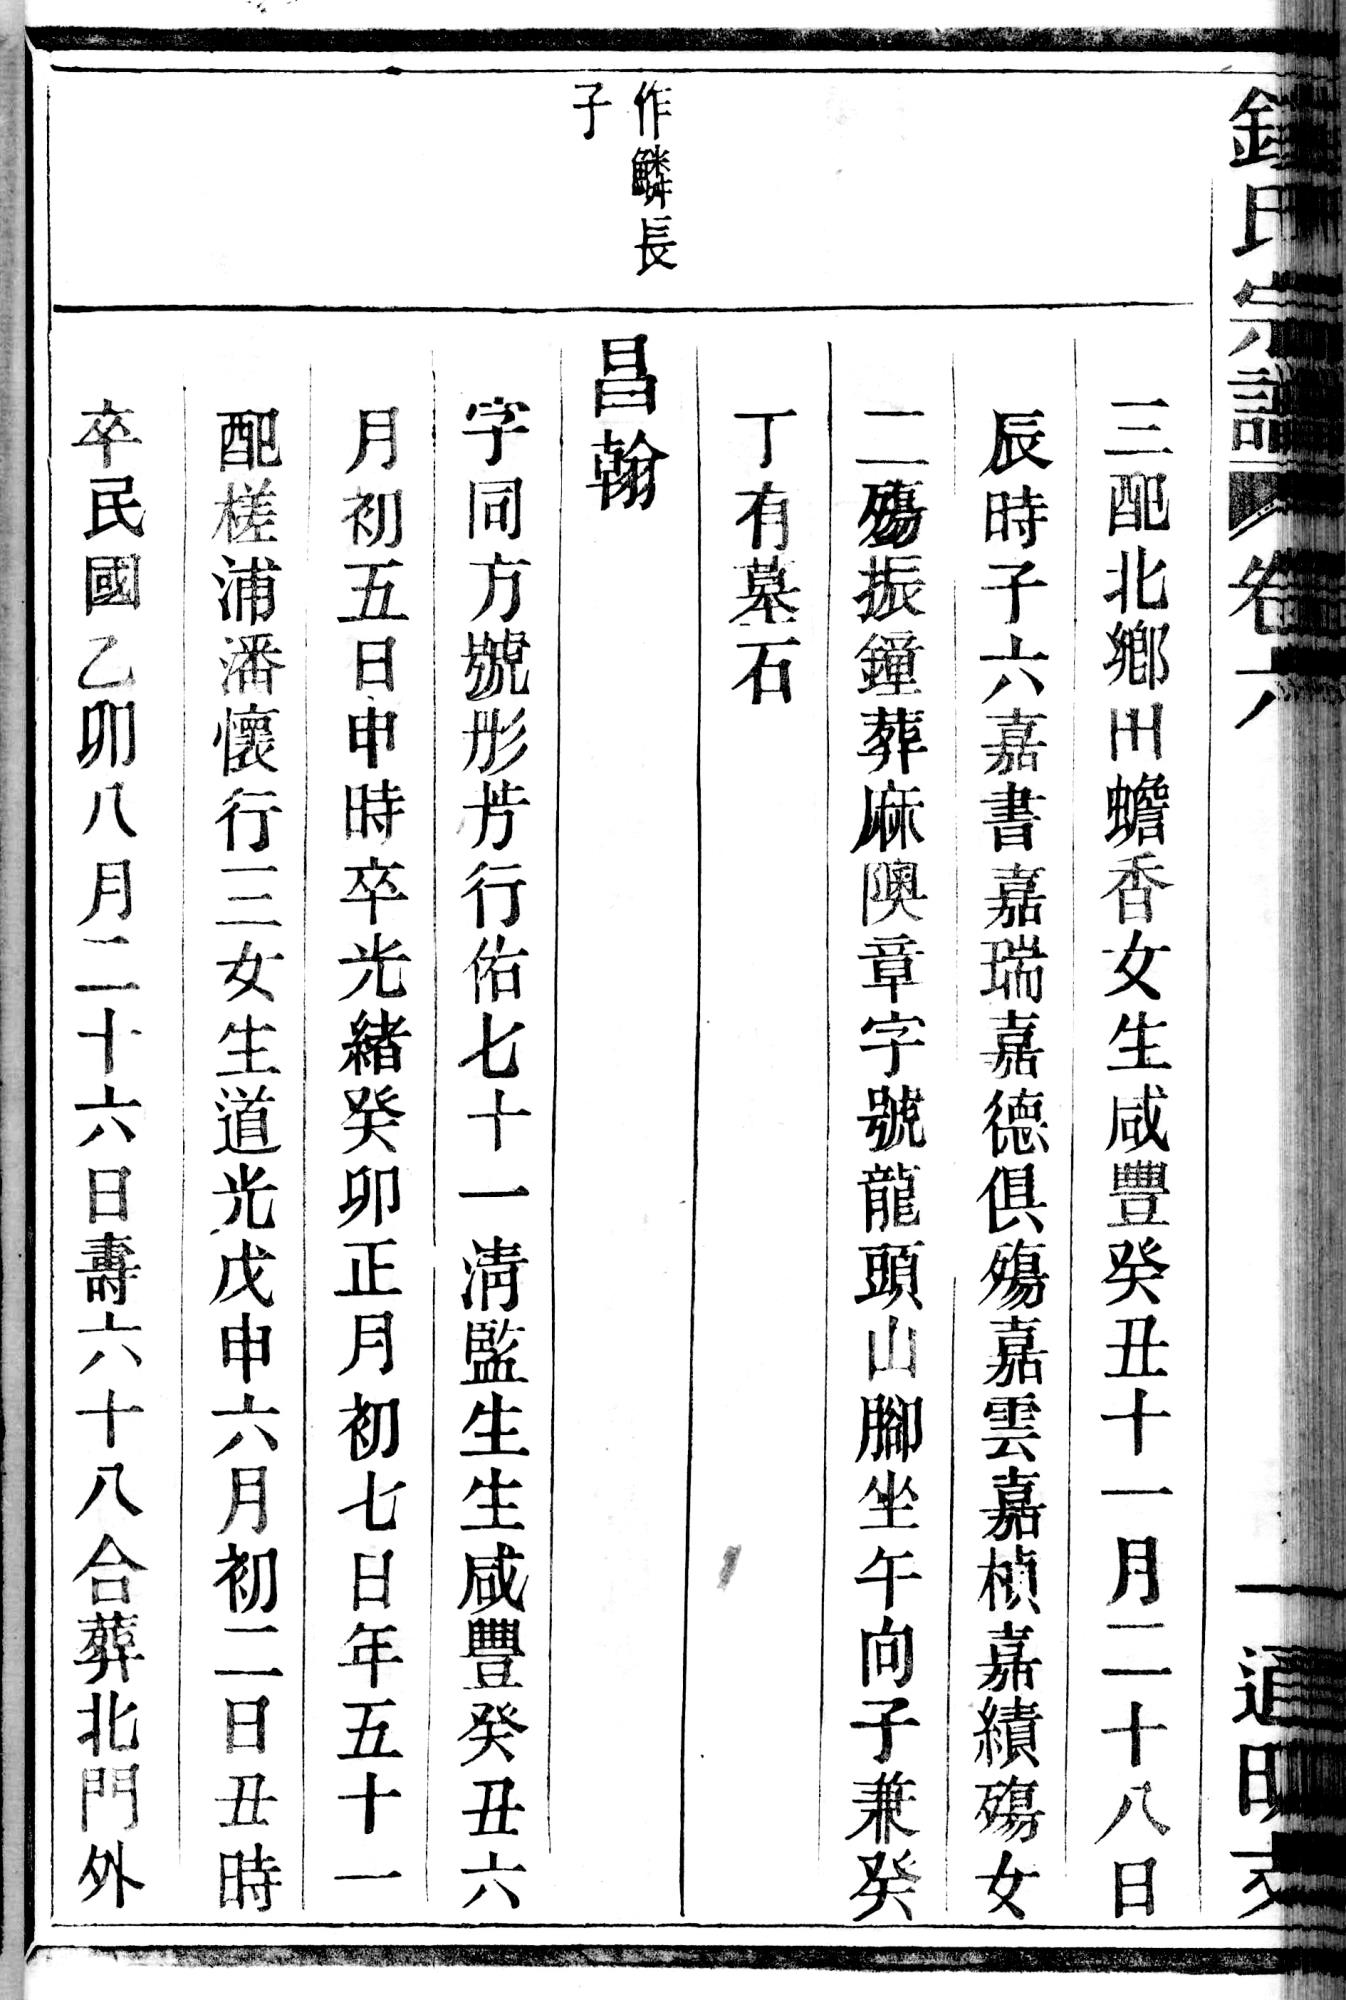 鍾氏宗譜 卷六 一 通明支
三配北鄉田蟾香女生咸豐癸丑十一月二十八日
辰時子六嘉書嘉瑞嘉德俱殤嘉雲嘉楨嘉績殤女
二殤振鐘葬麻隩章字號龍頭山腳坐午向子兼癸
丁有墓石
作鱗長
子
昌翰
字同方號彤芳行佑七十一清監生生咸豐癸丑六
月初五日申時卒光緒癸卯正月初七日年五十一
配槎浦潘懷行三女生道光戊申六月初二日丑時
卒民國乙卯八月二十六日壽六十八合葬北門外